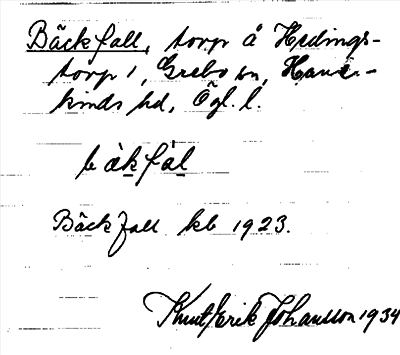 Bäckfall, torp å Hedings-
torp 1, Grebo sn, Hane-
kinds hd, Ögl. l.
bàkfàl
Bäckfall kb 1923.
Knut Erik Johansson 1934